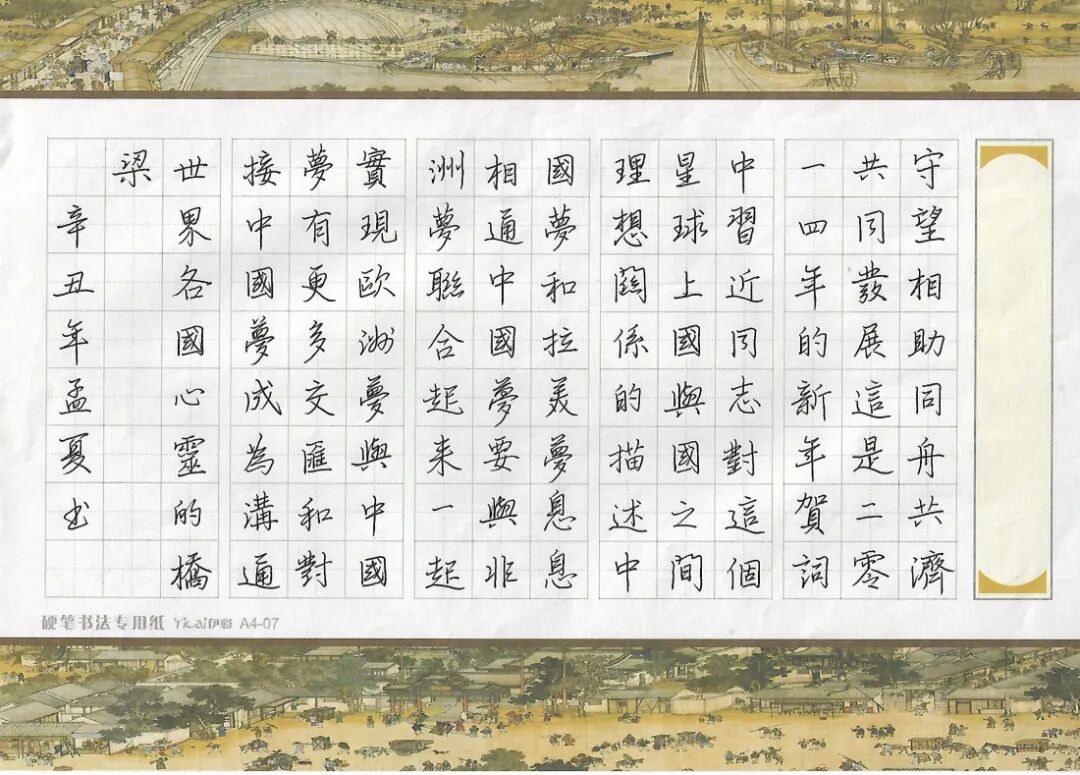 守望相助同舟共濟
共同發展這是二零
一四年的新年賀詞
中習近同志對這個
星球上國與國之間
理想關係的描述中
國夢和拉美夢息息
相通中國夢要與非
洲夢聯合起来一起
實現歐洲夢與中國
夢有更多交匯和對
接中國夢成為溝通
世界各國心靈的橋
梁
辛丑年孟夏书
硬笔书法专用纸 Yicai伊彩 A4-07